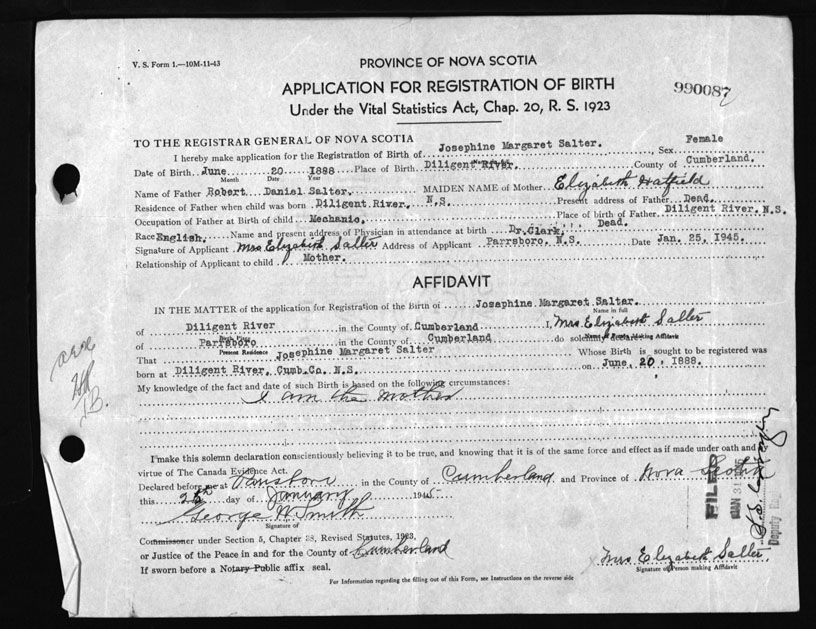 V. S. Form 1.—10M-11-43
PROVINCE OF NOVA SCOTIA
APPLICATION FOR REGISTRATION OF BIRTH
990087
Under the Vital Statistics Act, Chap. 20, R. S. 1923
TO THE REGISTRAR GENERAL OF NOVA SCOTIA
I hereby make application for the Registration of Birth of Josephine Margaret Salter. , Sex Female
Date of Birth June 20 1888 Place of Birth Diligent River. County of Cumberland.
Month Date Year
Name of Father Robert Daniel Salter. MAIDEN NAME of Mother Elizabeth Hatfield
Residence of Father when child was born Diligent River. N.S. Present address of Father Dead.
Occupation of Father at Birth of child Mechanic. Place of birth of Father Diligent River. N.S.
Race English. Name and present address of Physician in attendance at birth Dr. Clark, Dead.
Signature of Applicant Mrs Elizabeth Salter Address of Applicant Parrsboro. N.S. Date Jan. 25, 1945.
Relationship of Applicant to child Mother.
AFFIDAVIT
IN THE MATTER of the application for Registration of the Birth of Josephine Margaret Salter.
Name in full
of Diligent River in the County of Cumberland I, Mrs. Elizabeth Salter
Birth Place Name Person Making Affidavit
of Parrsboro in the County of Cumberland do solemnly declare
Present Residence
That Josephine Margaret Salter Whose Birth is sought to be registered was
born at Diligent River. Cumb.Co. N.S. on June 20, 1888.
My knowledge of the fact and date of such Birth is based on the following circumstances:
I am the mother
I make this solemn declaration conscientiously believing it to be true, and knowing that it is of the same force and effect as if made under oath and by
virtue of The Canada Evidence Act.
Declared before me at Parrsboro in the County of Cumberland and Province of Nova Scotia
this 25th day of January 1945
George W Smith
Signature of
Commissioner under Section 5, Chapter 38, Revised Statutes, 1923,
or Justice of the Peace in and for the County of Cumberland
If sworn before a Notary Public affix seal.
Mrs Elizabeth Salter
Signature of Person making Affidavit
For Information regarding the filling out of this Form, see Instructions on the reverse side
FILED
JAN 31
Deputy